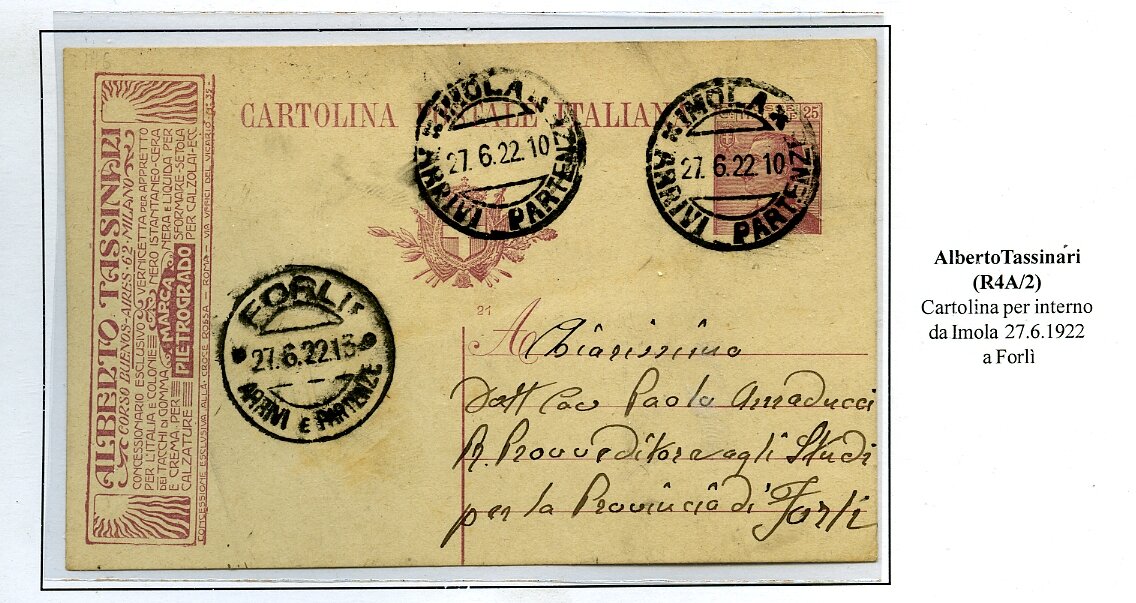 CARTOLINA POSTALE ITALIANA
25
IMOLA
27.6.22.10
ARRIVI - PARTENZE
IMOLA
27.6.22.10
ARRIVI - PARTENZE
ALBERTO TASSINARI
CORSO BUENOS-AIRES·62·MILANO
CONCESSIONARIO ESCLUSIVO VERNICETTA PER APPRETTO
PER L'ITALIA E COLONIE NERO ISTANTANEO-CERA
DEI TACCHI DI GOMMA MARCA NERA E LIQUIDA PER
E CREMA PER PIETROGRADO SFORMARE-SETOLA
CALZATURE PER CALZOLAI-ECC.
CONCESSIONE ESCLUSIVA ALLA CROCE ROSSA - ROMA - VIA UFFICI DEL VICARIO N. 35
FORLÌ
27.6.22.13
ARRIVI E PARTENZE
21
A Chiarissimo
Dott Cav Paolo Amaducci
R. Provveditore agli Studi
per la Provincia di Forlì
AlbertoTassinari
(R4A/2)
Cartolina per interno
da Imola 27.6.1922
a Forlì